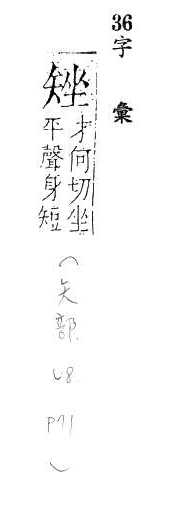 36
字彙
矬
才何切坐
平聲身短
（矢部.
P91
）